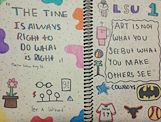 "THE TIME
IS ALWAYS
RIGHT TO
DO WHAT
IS RIGHT"
LSU 1
ART IS NOT
WHAT YOU
SEE BUT WHAT
YOU MAKE
OTHERS SEE
COWBOYS